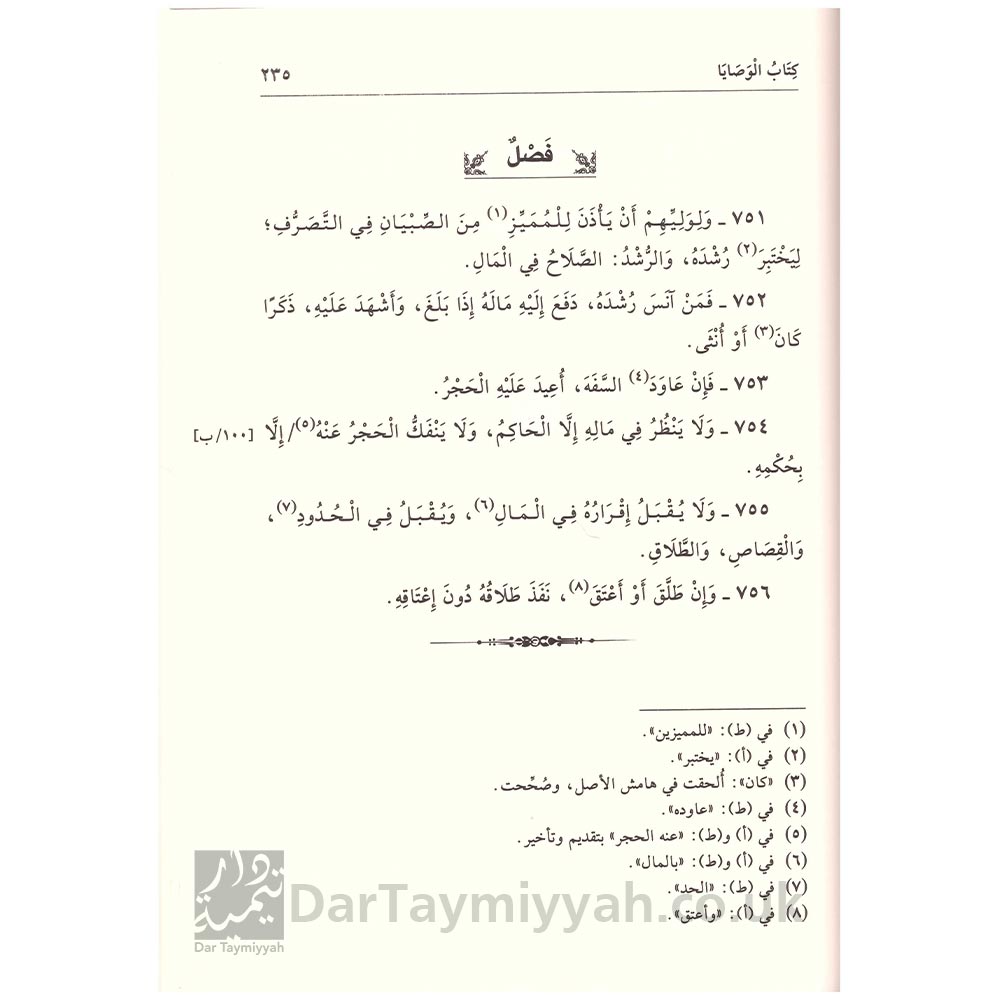 كِتَابُ الْوَصَايَا ٢٣٥
فَصْلٌ
٧٥١ ـ وَلِوَلِيِّهِمْ أَنْ يَأْذَنَ لِلْمُمَيِّزِ(١) مِنَ الصِّبْيَانِ فِي التَّصَرُّفِ؛
لِيَخْتَبِرَ(٢) رُشْدَهُ، وَالرُّشْدُ: الصَّلَاحُ فِي الْمَالِ.
٧٥٢ ـ فَمَنْ آنَسَ رُشْدَهُ، دَفَعَ إِلَيْهِ مَالَهُ إِذَا بَلَغَ، وَأَشْهَدَ عَلَيْهِ، ذَكَرًا
كَانَ(٣) أَوْ أُنْثَى.
٧٥٣ ـ فَإِنْ عَاوَدَ(٤) السَّفَهَ، أُعِيدَ عَلَيْهِ الْحَجْرُ.
٧٥٤ ـ وَلَا يَنْظُرُ فِي مَالِهِ إِلَّا الْحَاكِمُ، وَلَا يَنْفَكُّ الْحَجْرُ عَنْهُ(٥)/ إِلَّا [١٠٠/ب]
بِحُكْمِهِ.
٧٥٥ ـ وَلَا يُقْبَلُ إِقْرَارُهُ فِي الْمَالِ(٦)، وَيُقْبَلُ فِي الْحُدُودِ(٧)،
وَالْقِصَاصِ، وَالطَّلَاقِ.
٧٥٦ ـ وَإِنْ طَلَّقَ أَوْ أَعْتَقَ(٨)، نَفَذَ طَلَاقُهُ دُونَ إِعْتَاقِهِ.
(١) في (ط): «للمميزين».
(٢) في (أ): «يختبر».
(٣) «كان»: أُلحقت في هامش الأصل، وصُحِّحت.
(٤) في (ط): «عاوده».
(٥) في (أ) و(ط): «عنه الحجر» بتقديم وتأخير.
(٦) في (أ) و(ط): «بالمال».
(٧) في (ط): «الحد».
(٨) في (أ): «وأعتق».
دار تيمية
Dar Taymiyyah
DarTaymiyyah.co.uk